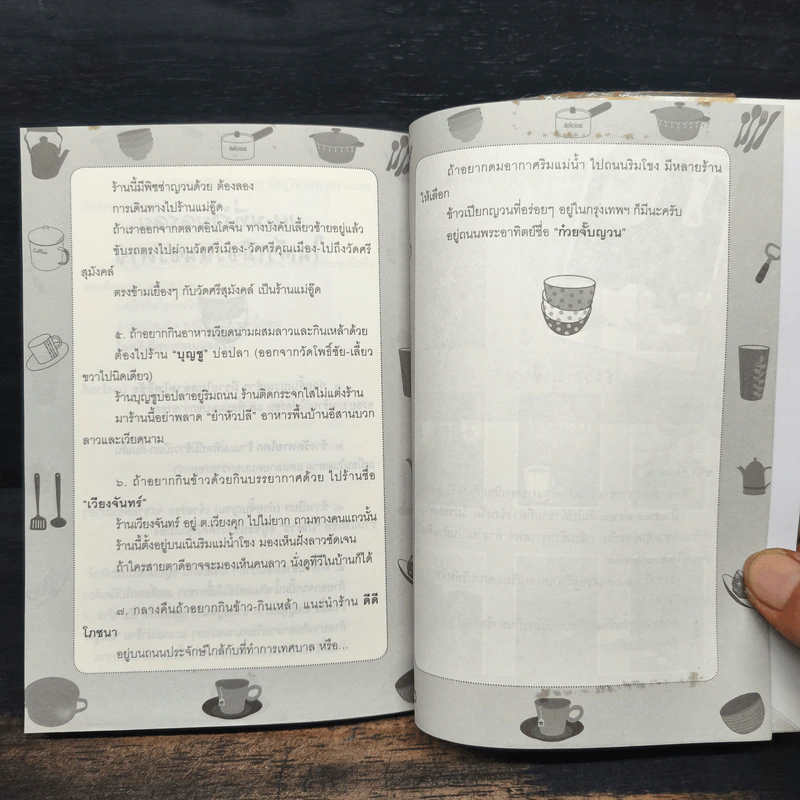 ร้านนี้มีพิซซ่าญวนด้วย ต้องลอง
การเดินทางไปร้านแม่อู๊ด
ถ้าเราออกจากตลาดอินโดจีน ทางบังคับเลี้ยวซ้ายอยู่แล้ว
ขับรถตรงไปผ่านวัดศรีเมือง-วัดศรีคุณเมือง-ไปถึงวัดศรี
สุมังคล์
ตรงข้ามเยื้องๆ กับวัดศรีสุมังคล์ เป็นร้านแม่อู๊ด
๕. ถ้าอยากกินอาหารเวียดนามผสมลาวและกินเหล้าด้วย
ต้องไปร้าน "บุญชู" บ่อปลา (ออกจากวัดโพธิ์ชัย-เลี้ยว
ขวาไปนิดเดียว)
ร้านบุญชูบ่อปลาอยู่ริมถนน ร้านติดกระจกใสไม่แต่งร้าน
มาร้านนี้อย่าพลาด "ยำหัวปลี" อาหารพื้นบ้านอีสานบวก
ลาวและเวียดนาม
๖. ถ้าอยากกินข้าวด้วยกินบรรยากาศด้วย ไปร้านชื่อ
"เวียงจันทร์"
ร้านเวียงจันทร์ อยู่ ต.เวียงคุก ไปไม่ยาก ถามทางคนแถวนั้น
ร้านนี้ตั้งอยู่บนเนินริมแม่น้ำโขง มองเห็นฝั่งลาวชัดเจน
ถ้าใครสายตาดีอาจจะมองเห็นคนลาว นั่งดูทีวีในบ้านก็ได้
๗. กลางคืนถ้าอยากกินข้าว-กินเหล้า แนะนำร้าน ดีดี
โภชนา
อยู่บนถนนประจักษ์ใกล้กับที่ทำการเทศบาล หรือ...
ถ้าอยากดมอากาศริมแม่น้ำ ไปถนนริมโขง มีหลายร้าน
ให้เลือก
ข้าวเปียกญวนที่อร่อยๆ อยู่ในกรุงเทพฯ ก็มีนะครับ
อยู่ถนนพระอาทิตย์ชื่อ "ก๋วยจั๊บญวน"
delicious
delicious
Coffee